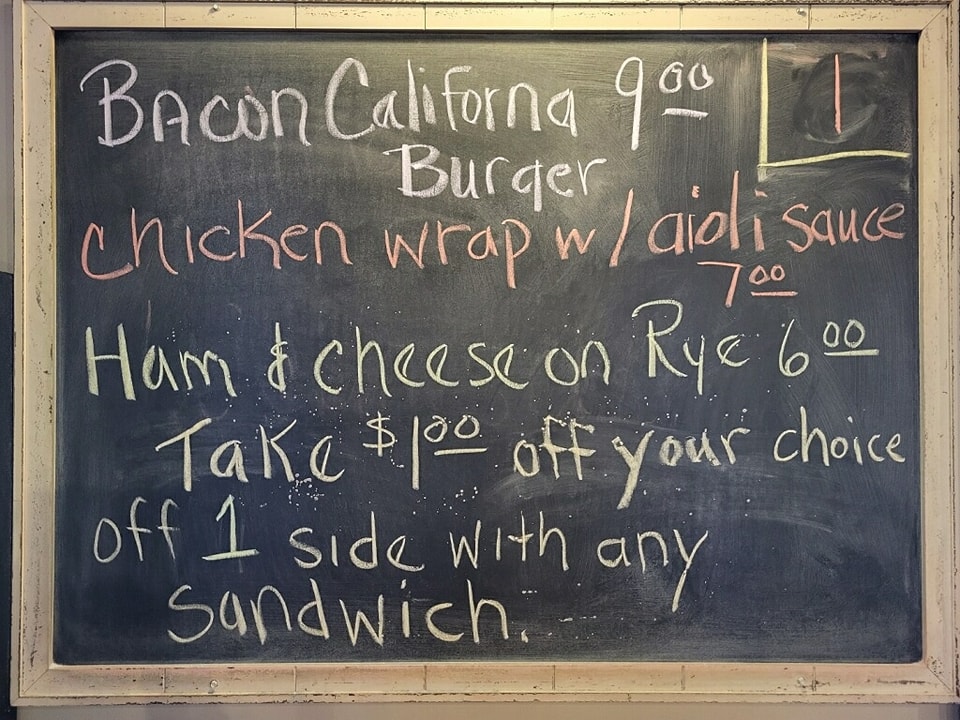 Bacon Californa 9.00
1
Burger
chicken wrap w/ aioli sauce
7.00
Ham & cheese on Rye 6.00
Take $1.00 off your choice
off 1 side with any
sandwich.